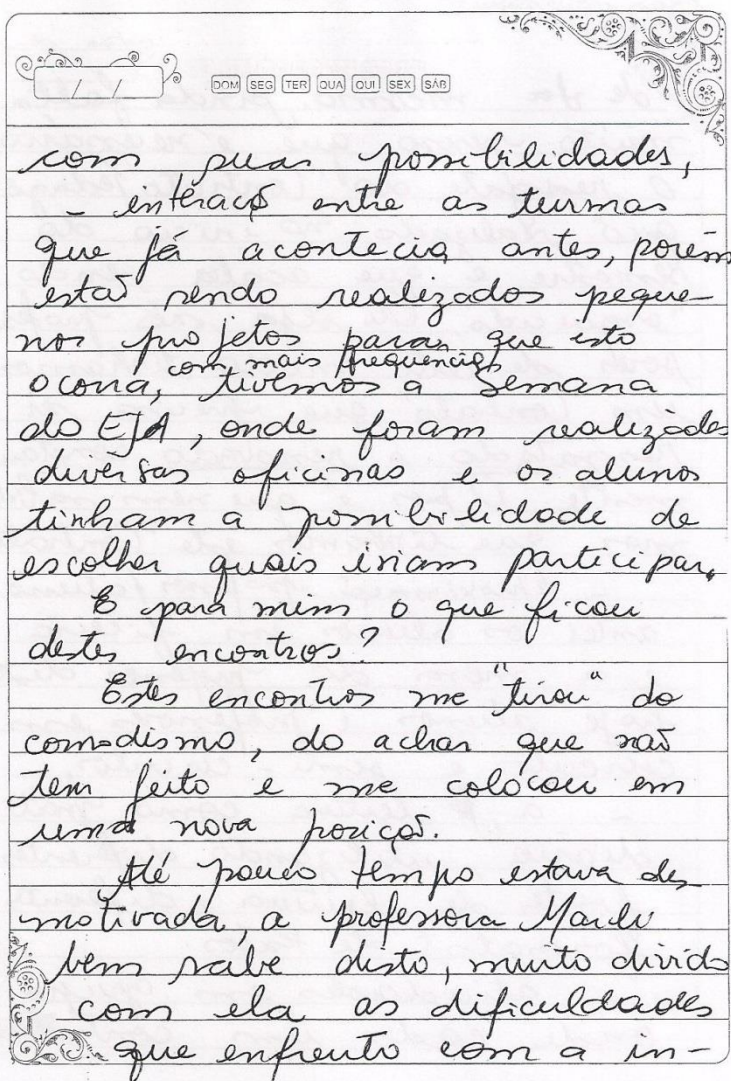 / /
DOM SEG TER QUA QUI SEX SÁB
com suas possibilidades,
- interação entre as turmas
que já acontecia antes, porém
estão sendo realizados peque-
nos projetos para que isto
ocorra, com mais frequência, tivemos a Semana
do EJA, onde foram realizadas
diversas oficinas e os alunos
tinham a possibilidade de
escolher quais iriam participar.
E para mim o que ficou
destes encontros?
Estes encontros me "tirou" do
comodismo, do achar que não
tem jeito e me colocou em
uma nova posição.
Até pouco tempo estava des
motivada, a professora
bem sabe disto, muito divido
com ela as dificuldades
que enfrento com a in-